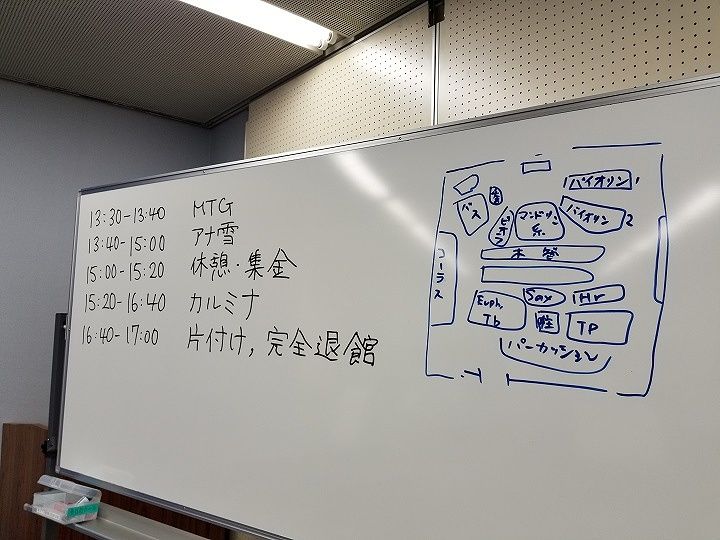 13:30-13:40 MTG
13:40-15:00 アナ雪
15:00-15:20 休憩・集金
15:20-16:40 カルミナ
16:40-17:00 片付け，完全退館
バイオリン1
バス
バイオリン2
マンドリン系
コーラス
木管
Euph.
Tb
Sax
Hr
TP
パーカッション